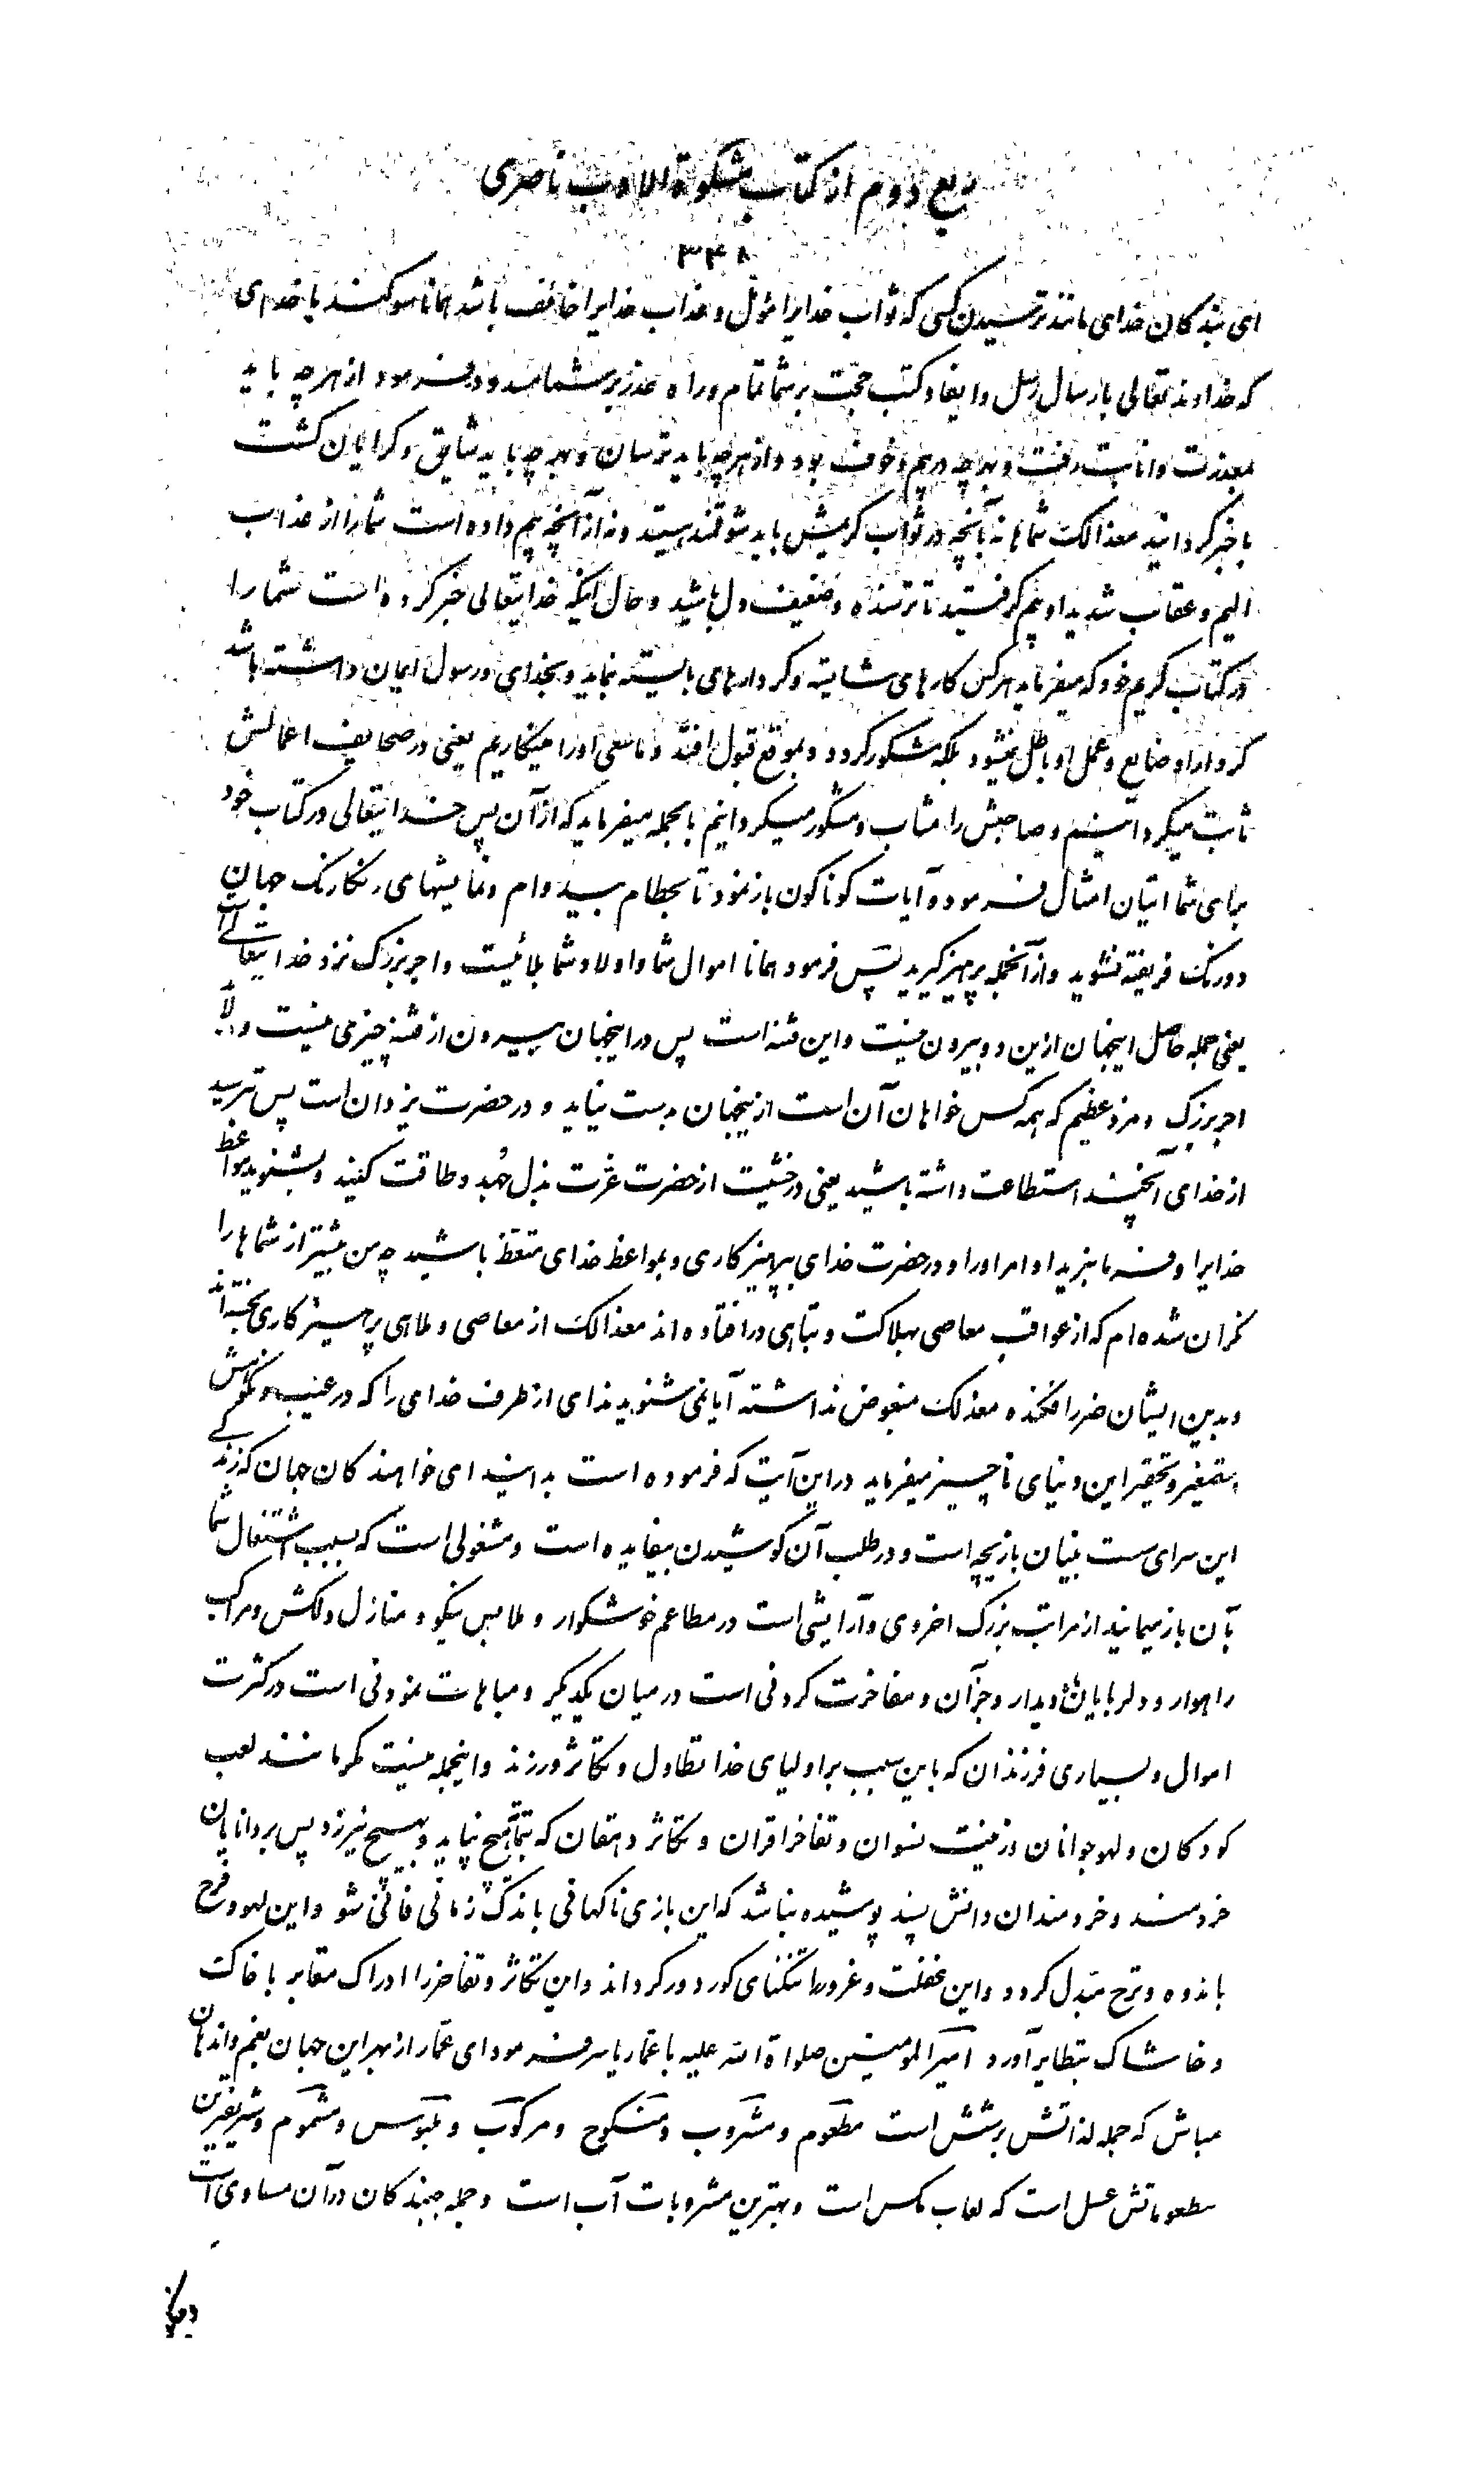 ربع دوم از کتاب مشکوة الادب ناصری
۳۴۸
ای بندکان خدای مانند ترسیدن کسی که ثواب خدایرا مؤمل و عذاب خدایرا خائف باشد همانا سوکند با خدای
که خداوند تعالی بارسال رسل و ایفاد کتب حجت بر شما تمام و راه عذر بر شما مسدود فرمود از هر چه باید
بمعذرت و انابت رفت و بهر چه در بیم و خوف بود و از هر چه باید ترسان و بهر چه باید شایق و کرایان کشت
باخبر کردانید معذالک شماها نه بآنچه در ثواب کرمیش باید شوقمند هستید و نه از آنچه بیم داده است شما را از عذاب
الیم و عقاب شدید او بیم کرفتید تا ترسنده و ضعیف دل باشید و حال اینکه خدایتعالی خبر کرده است شما را
در کتاب کریم خود که میفرماید هر کس کارهای شایسته و کردارهای بایسته نماید و بخدای و رسول ایمان داشته باشد
کردار او ضایع و عمل او باطل نمیشود بلکه مشکور کردد و بموقع قبول افتد و ما سعی او را مینکاریم یعنی در صحایف اعمالش
ثابت میکردانیم و صاحبش را مثاب و مشکور میکردانیم بالجمله میفرماید که از آن پس خدایتعالی در کتاب خود
برای شما اتیان امثال فرمود و آیات کوناکون باز نمود تا بحطام بیدوام و نمایشهای رنکارنک جهان
دورنک فریفته نشوید و از آنجمله پرهیز کیرید پس فرمود همانا اموال شما و اولاد شما بلائیست و اجر بزرک نزد خدایتعالی است
یعنی جمله حاصل اینجهان ازین دو بیرون نیست و این فتنه است پس در اینجهان بیرون از فتنه چیزی نیست و الا
اجر بزرک و مزد عظیم که همه کس خواهان آن است از اینجهان بدست نیاید و در حضرت یزدان است پس بترسید
از خدای آنچند استطاعت داشته باشید یعنی در خشیت از حضرت عزت بذل جهد و طاقت کنید و بشنوید مواعظ
خدایرا و فرمان برید اوامر او را و در حضرت خدای بپرهیزکاری و بمواعظ خدای متعظ باشید چه من بیشتر از شماها را
نکران شده‌ام که از عواقب معاصی بهلاکت و تباهی در افتاده‌اند معذالک از معاصی و ملاهی پرهیزکاری نجسته‌اند
و بدین ایشان ضرر افکنده معذلک مبغوض نداشته آیا نمی‌شنوید ندای از طرف خدای را که در عیب و نکوهش
و تصغیر و تحقیر این دنیای ناچیز میفرماید در این آیت که فرموده است بدانید ای خواهندکان جهان که زندکی
این سرای سست بنیان بازیچه است و در طلب آن کوشیدن بیفایده است و مشغولی است که بسبب اشتغال شما
بآن باز میمانید از مراتب بزرک اخروی و آرایشی است در مطاعم خوشکوار و ملابس نیکو و منازل دلکش و مراکب
راهوار و دلربایان دیدار و جز آن و مفاخرت کردنی است در میان یکدیکر و مباهات نمودنی است در کثرت
اموال و بسیاری فرزندان که باین سبب بر اولیای خدا تطاول و تکاثر ورزند و اینجمله نیست مکر مانند لعب
کودکان و لهو جوانان و زینت نسوان و تفاخر اقران و تکاثر دهقان که بتمامت هیچ نپاید و بهیچ نیرزد پس بر دانایان
خردمند و خردمندان دانش پسند پوشیده نباشد که این بازی ناکهانی باندک زمانی فانی شود و این لهو و فرح
باندوه و ترح مبدل کردد و این غفلت و غرور را تنکنای کور دور کرداند و این تکاثر و تفاخر را ادراک مقابر با خاک
و خاشاک بتطایر آورد امیرالمومنین صلواة الله علیه با عمار یاسر فرمود ای عمار از بهر این جهان بغم و اندهان
مباش که جمله لذاتش بر شش است مطعوم و مشروب و منکوح و مرکوب و ملبوس و مشموم و شریفترین
مطعوماتش عسل است که لعاب مکس است و بهترین مشروبات آب است و جمله جنبندکان در آن مساوی است